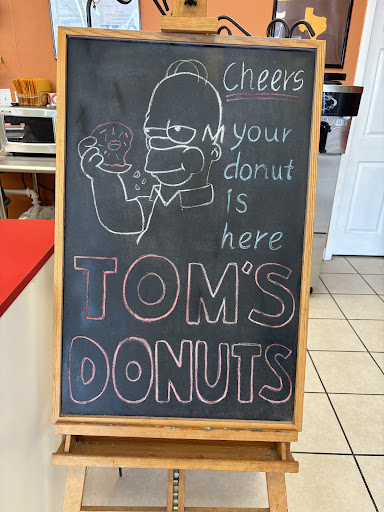 Cheers
your
donut
is
here
TOM'S
DONUTS